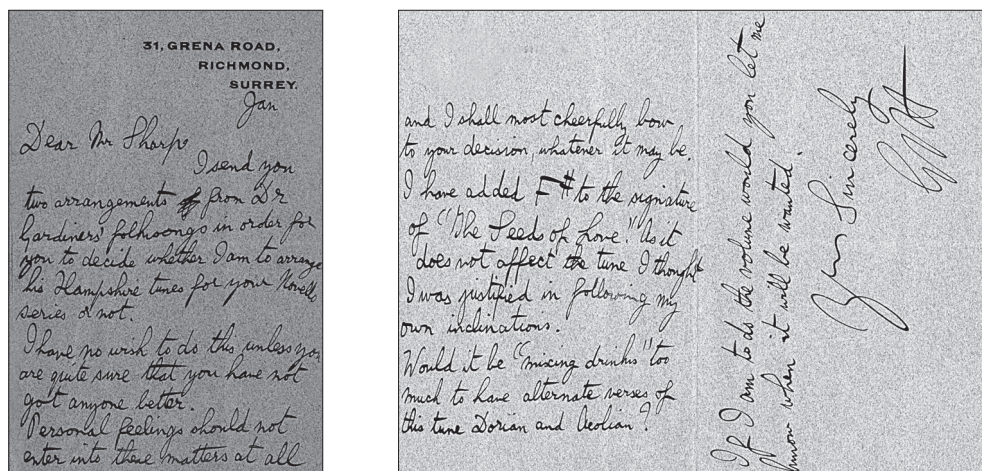 31, GRENA ROAD,
RICHMOND,
SURREY.
Jan
Dear Mr Sharp
I send you
two arrangements from Dr
Gardiners' folksongs in order for
you to decide whether I am to arrange
his Hampshire tunes for your Novello
series or not.
I have no wish to do this unless you
are quite sure that you have not
got anyone better.
Personal feelings should not
enter into these matters at all
and I shall most cheerfully bow
to your decision, whatever it may be.
I have added F # to the signature
of "The Seeds of Love". As it
does not affect the tune I thought
I was justified in following my
own inclinations.
Would it be "mixing drinks" too
much to have alternate verses of
this tune Dorian and Aeolian?
If I am to do the volume would you let me
know when it will be wanted.
Yours Sincerely